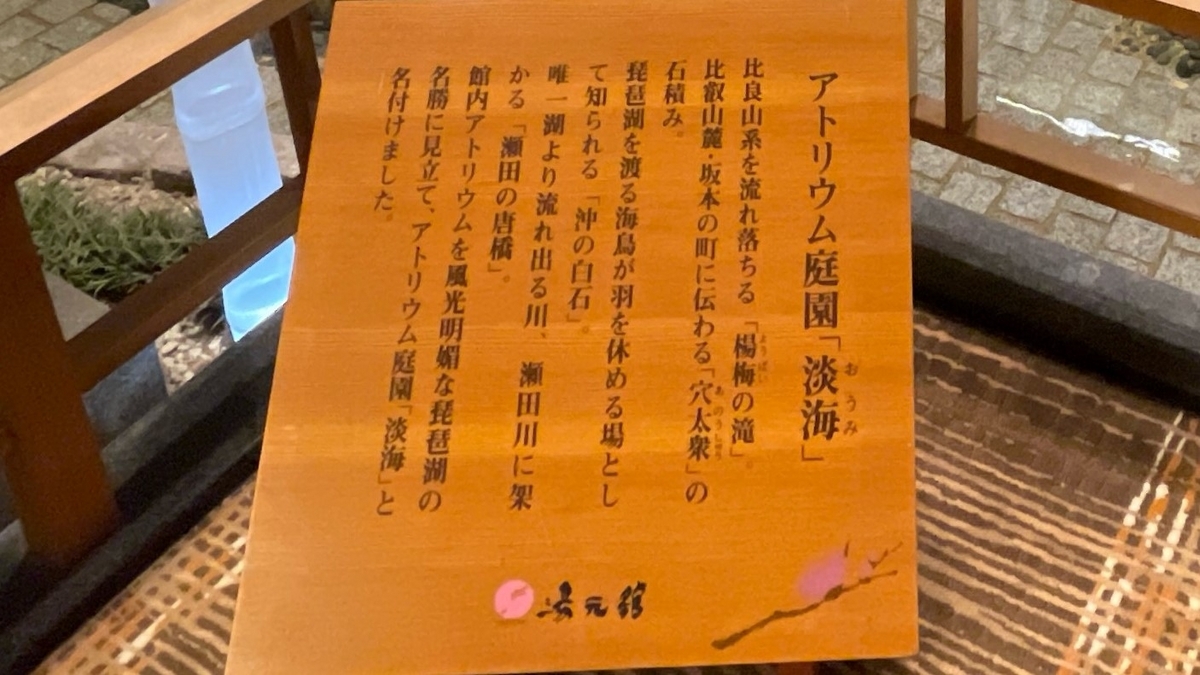 アトリウム庭園「淡海」
おうみ
比良山系を流れ落ちる「楊梅の滝」。
ようばい
比叡山麓・坂本の町に伝わる「穴太衆」の
あのうしゅう
石積み。
琵琶湖を渡る海鳥が羽を休める場とし
て知られる「沖の白石」。
唯一湖より流れ出る川、瀬田川に架
かる「瀬田の唐橋」。
館内アトリウムを風光明媚な琵琶湖の
名勝に見立て、アトリウム庭園「淡海」と
名付けました。
湯元舘